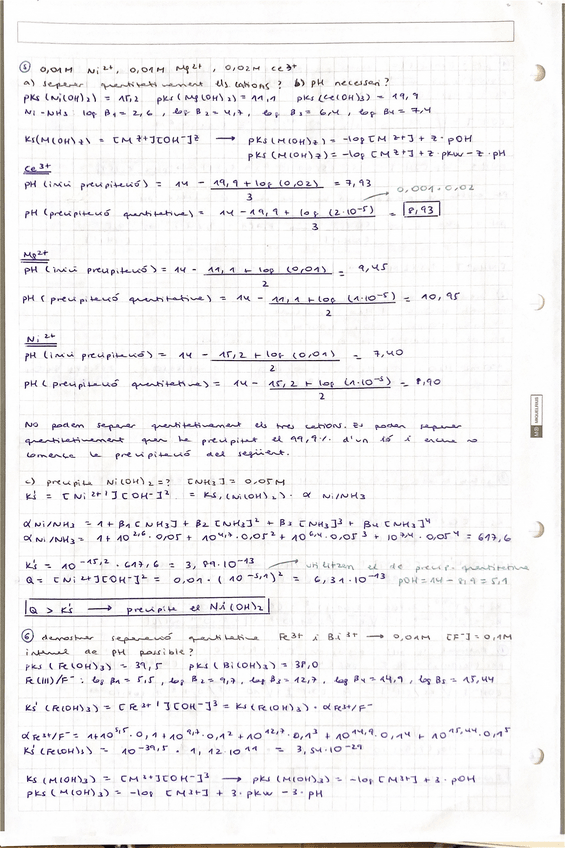 ⑤ 0,01M Ni²⁺, 0,01M Mg²⁺, 0,02M Ce³⁺
a) separar quantitativament els cations? b) pH necessari?
pKs (Ni(OH)₂) = 15,2 pKs (Mg(OH)₂) = 11,1 pKs (Ce(OH)₃) = 19,9
Ni-NH₃ log B₁ = 2,6, log B₂ = 4,7, log B₃ = 6,4, log B₄ = 7,4
Ks(M(OH)z) = [Mᶻ⁺][OH⁻]ᶻ → pKs(M(OH)z) = -log[Mᶻ⁺] + z·pOH
pKs(M(OH)z) = -log[Mᶻ⁺] + z·pKw - z·pH
Ce³⁺
pH (inici precipitació) = 14 - (19,9 + log (0,02)) / 3 = 7,93
0,001·0,02
pH (precipitació quantitativa) = 14 - (19,9 + log (2·10⁻⁵)) / 3 = 8,93
Mg²⁺
pH (inici precipitació) = 14 - (11,1 + log (0,01)) / 2 = 9,45
pH (precipitació quantitativa) = 14 - (11,1 + log (1·10⁻⁵)) / 2 = 10,95
Ni²⁺
pH (inici precipitació) = 14 - (15,2 + log (0,01)) / 2 = 7,40
pH (precipitació quantitativa) = 14 - (15,2 + log (1·10⁻⁵)) / 2 = 8,90
No podem separar quantitativament els tres cations. Es poden separar
quantitativament quan ha precipitat el 99,9% d'un ió i encara no
comença la precipitació del següent.
c) precipita Ni(OH)₂ =? [NH₃] = 0,05M
Ks' = [Ni²⁺'][OH⁻]² = Ks, (Ni(OH)₂) · α Ni/NH₃
α Ni/NH₃ = 1 + B₁[NH₃] + B₂[NH₃]² + B₃[NH₃]³ + B₄[NH₃]⁴
α Ni/NH₃ = 1 + 10²,⁶·0,05 + 10⁴,⁷·0,05² + 10⁶,⁴·0,05³ + 10⁷,⁴·0,05⁴ = 617,6
Ks' = 10⁻¹⁵,²·617,6 = 3,89·10⁻¹³ utilitzem el de precip. quantitativa
Q = [Ni²⁺][OH⁻]² = 0,01·(10⁻⁵,¹)² = 6,31·10⁻¹³ pOH = 14 - 8,9 = 5,1
Q > Ks' → precipita el Ni(OH)₂
⑥ demostrar separació quantitativa Fe³⁺ i Bi³⁺ → 0,01M [F⁻] = 0,1M
interval de pH possible?
pKs (Fe(OH)₃) = 39,5 pKs (Bi(OH)₃) = 38,0
Fe(III)/F⁻: log B₁ = 5,5, log B₂ = 9,7, log B₃ = 12,7, log B₄ = 14,9, log B₅ = 15,44
Ks' (Fe(OH)₃) = [Fe³⁺'][OH⁻]³ = Ks(Fe(OH)₃) · αFe³⁺/F⁻
αFe³⁺/F⁻ = 1+10⁵,⁵·0,1 + 10⁹,⁷·0,1² + 10¹²,⁷·0,1³ + 10¹⁴,⁹·0,1⁴ + 10¹⁵,⁴⁴·0,1⁵
Ks' (Fe(OH)₃) = 10⁻³⁹,⁵ · 1,12·10¹¹ = 3,54·10⁻²⁹
Ks (M(OH)₃) = [M³⁺][OH⁻]³ → pKs(M(OH)₃) = -log[M³⁺] + 3·pOH
pKs (M(OH)₃) = -log [M³⁺] + 3·pKw - 3·pH
MIQUELRIUS